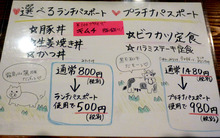 選べるランチパスポート
プラチナパスポート
☆豚丼
☆生姜焼き丼
☆かつ丼
☆ビフカツ定食
☆ハラミステーキ定食
通常800円
(税別)
ランチパスポート
使用で500円
(税別)
通常1480円
(税別)
プラチナパスポート
使用で980円
(税別)